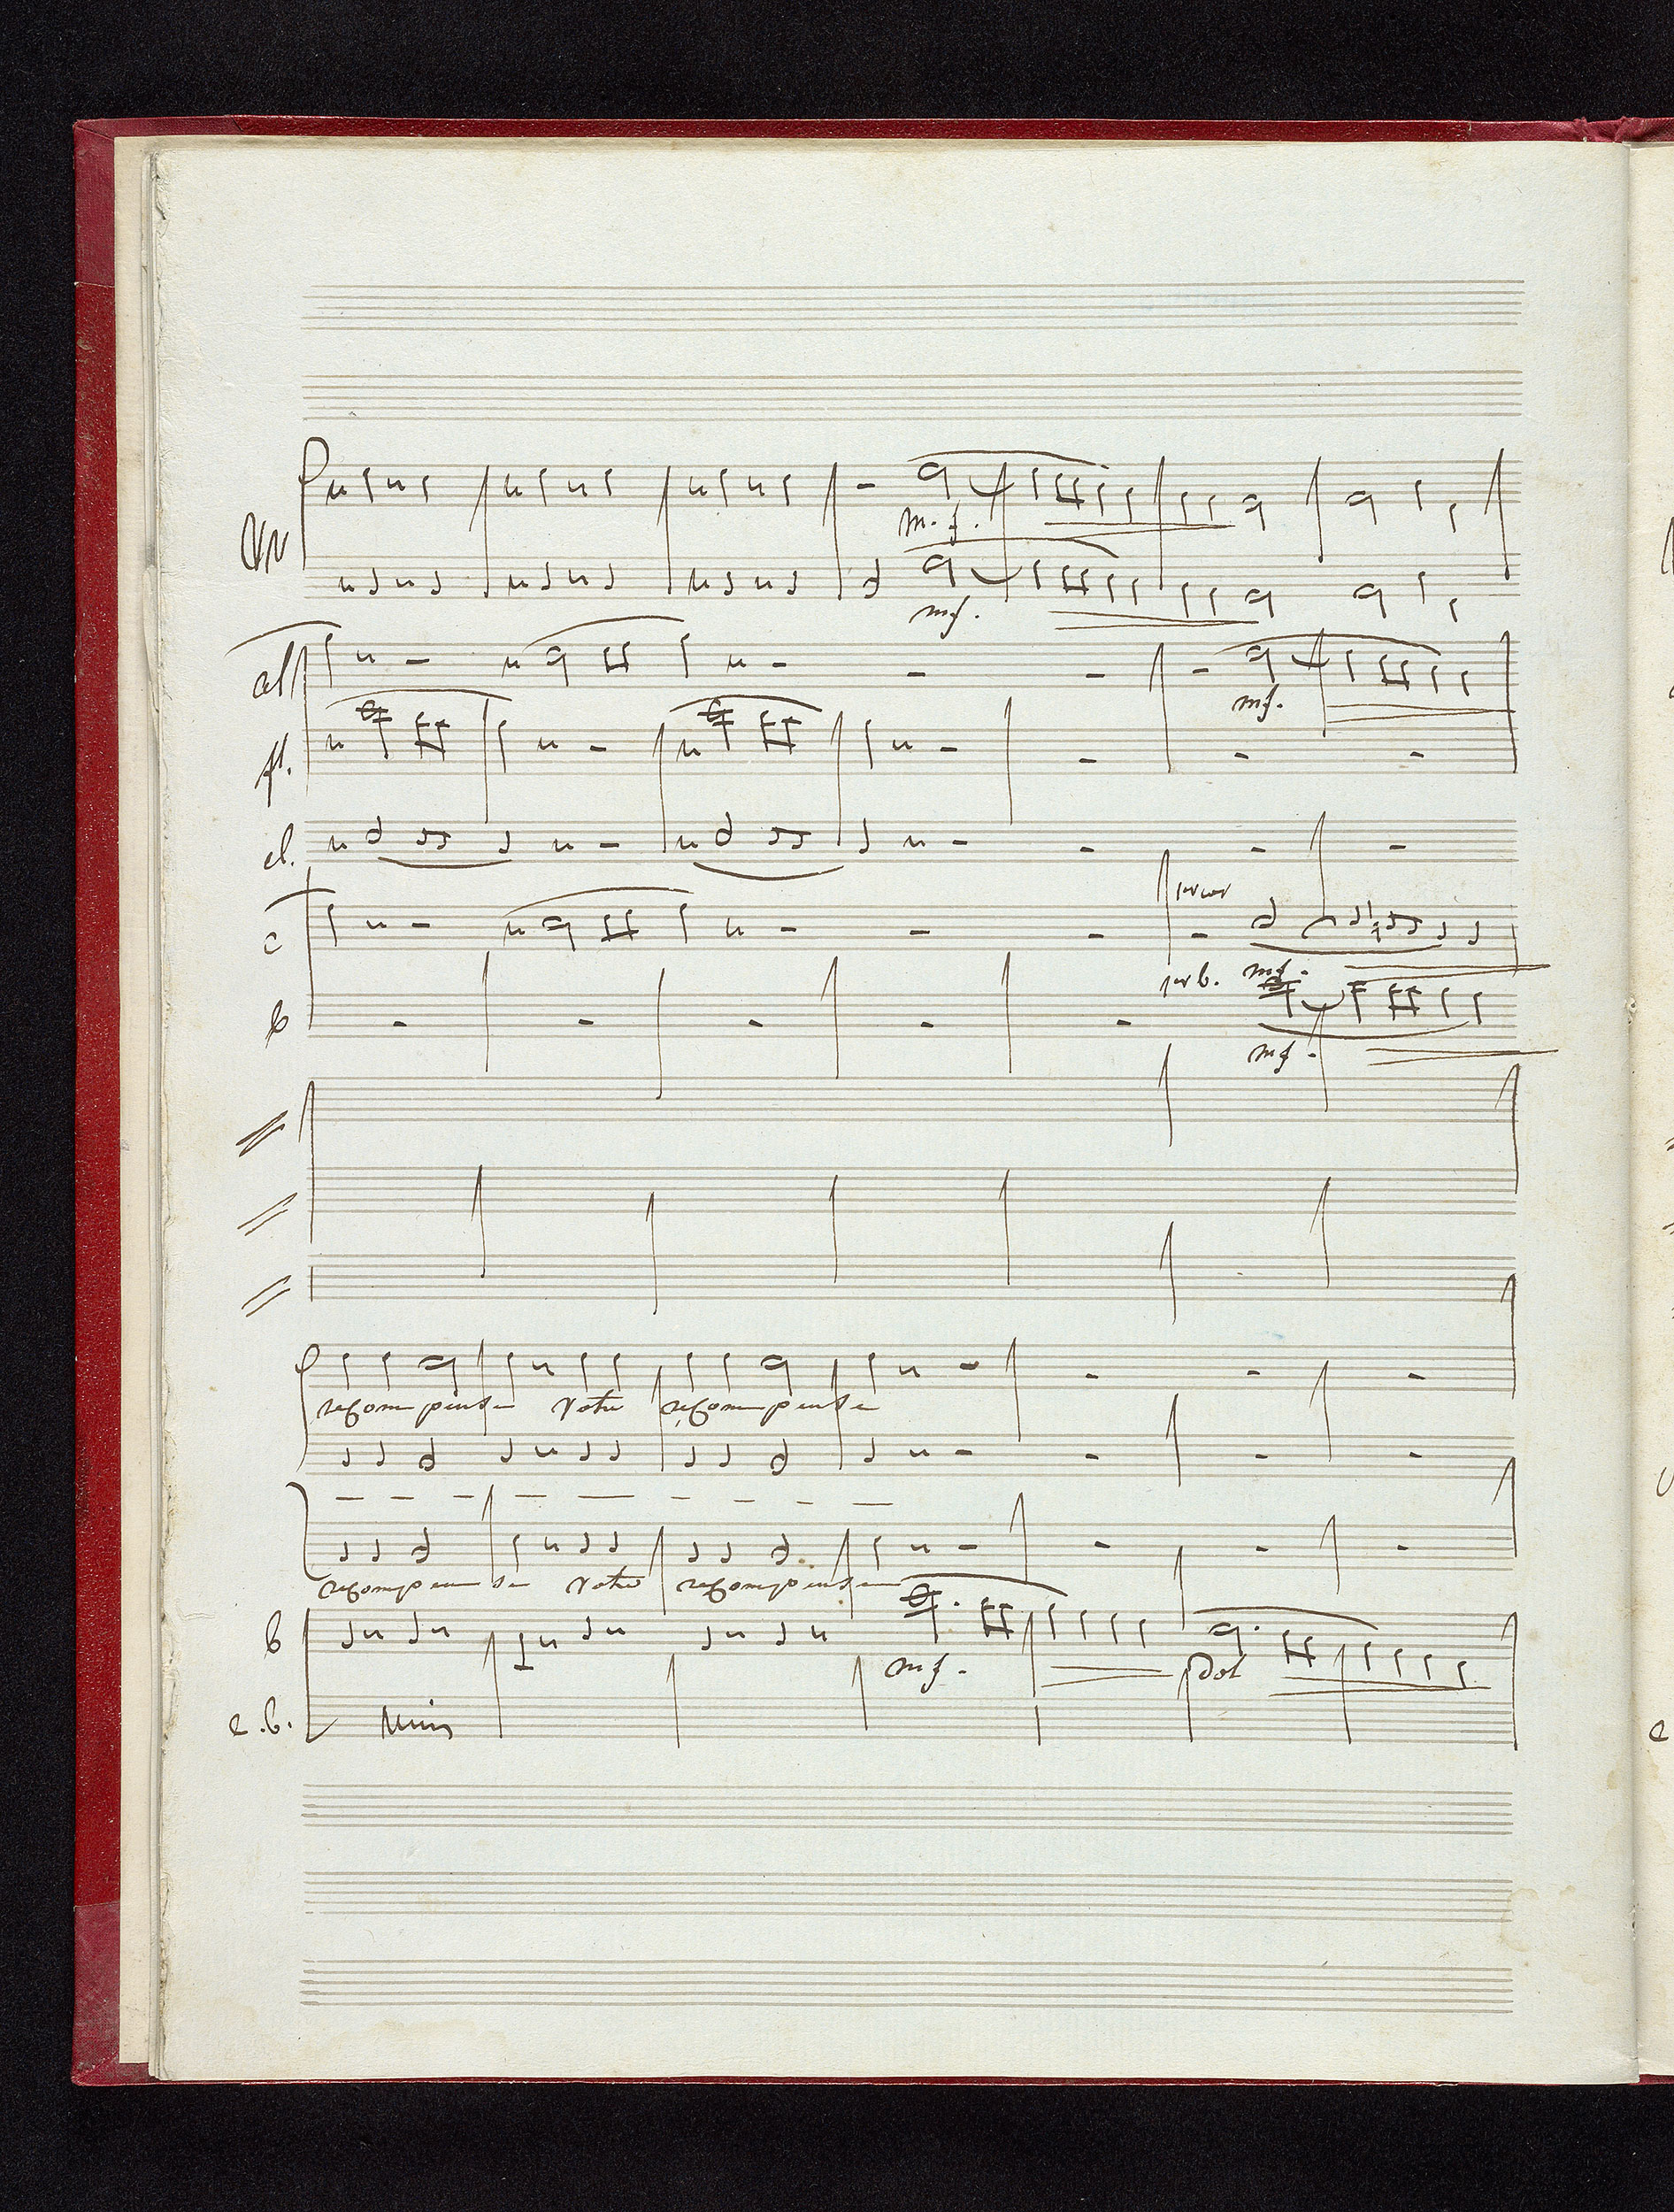 Vn
m.f.
mf.
alt
mf.
fl.
cl.
c
mf.
b
mf.
recompense votre recompense
recompense votre recompense
b
mf.
dol
c.b.